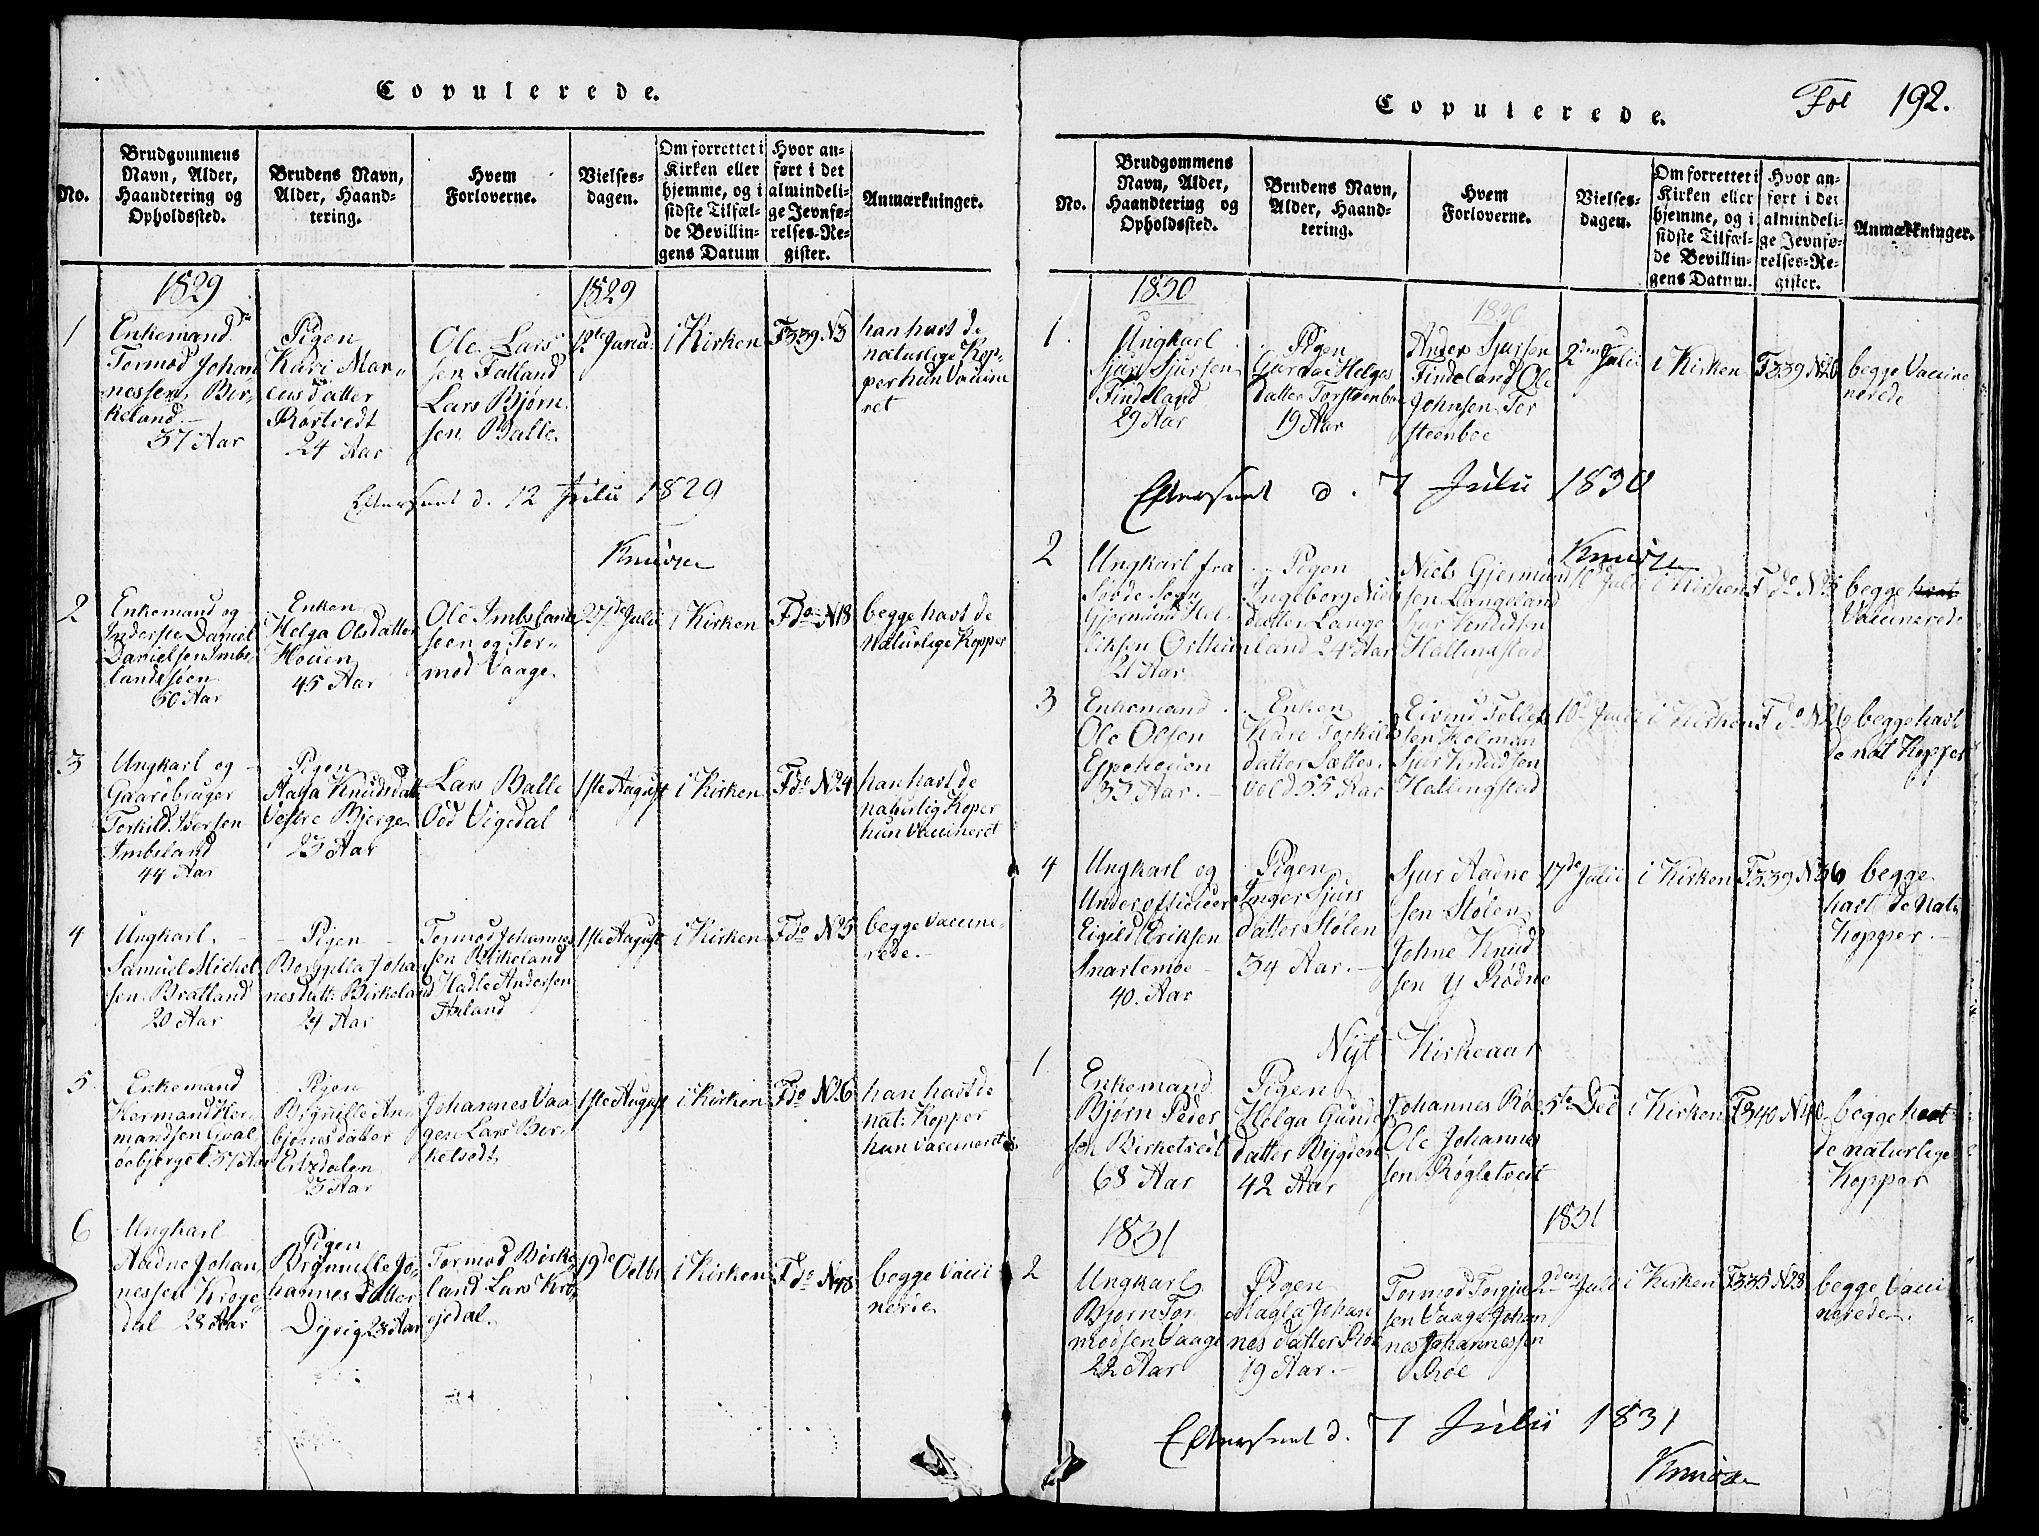 Copulerede.
No.
Brudgommens
Navn, Alder,
Haandtering og
Opholdssted.
Brudens Navn,
Alder, Haand-
tering.
Hvem
Forloverne.
Vielses-
dagen.
Om forrettet i
Kirken eller
hjemme, og i
sidste Tilfæl-
de Bevillin-
gens Datum
Hvor an-
ført i det
almindeli-
ge Jevnfø-
relses-Re-
gister.
Anmærkninger.
1829
1829
1
Enkemand
Tormod Johan
nessen Bir-
keland
37 Aar
Pigen
Kari Mar-
cusdatter
Rørtvedt
24 Aar
Ole Lars
sen Fatland
Lars Bjørn
sen Balle
i Kirken
F339 N3
han havt de
naturlige Kop-
per hun Vaccine
ret
d. 12 Julii 1829
2
Enkemand og
Inderste Daniel
Danielsen Imbs
landsøen
Enken
Helga Olsdatter
Houen
45 Aar
Ole Imbsland
søen og Tor-
mod Vaage
27de Julii
i Kirken
Fdo N18
begge havt de
Naturlige Kopper
3
Ungkarl og
Gaardbruger
Torkild Iversen
Imbsland
44 Aar
Pigen
Aasa Knudsdatt
Vestre Bjerge
23 Aar
Lars Balle
Odd Vigedal
1ste August
i Kirken
Fdo N24
han havt de
naturlig Koper
hun Vaccineret
4
Ungkarl
Samuel Michel
sen Bratland
20 Aar
Pigen
Borgella Johan
nesdatt: Birkeland
24 Aar
Tormod Johannes
sen Birkeland
Hadle Andersen
Aaland
1ste August
i Kirken
Fdo N25
begge Vaccine-
rede.
5
Enkemand
Hermand Her-
mandsen Qval
øebjerget 37 Aar
Pigen
bjørnsdatter
23 Aar
Johannes Vaa
gen Lars Bir-
kelsedt
1ste August
i Kirken
Fdo N26
han havt de
nat: Kopper
hun Vaccineret
6
Ungkarl
Aadne Johan
nessen Krage
dal 28 Aar
Pigen
Brønnille Jo-
hannes Datter
Dyrvig 28 Aar
Tormod Birke
land Lars Krø
gedal.
19de Octbr
i Kirken
Fdo N48
begge Vacci
nerie
Copulerede.
Fol 192.
No.
Brudgommens
Navn, Alder,
Haandtering og
Opholdssted.
Brudens Navn,
Alder, Haand-
tering.
Hvem
Forloverne.
Vielses-
dagen.
Om forrettet i
Kirken eller
hjemme, og i
sidste Tilfæl-
de Bevillin-
gens Datum.
Hvor an-
ført i det
almindeli-
ge Jevnfø-
relses-Re-
gister.
Anmærkninger.
1830
1830
1
Ungkarl
Sjur Sjursen
Findeland
29 Aar
Pigen
Helges
Datter Torsteenboe
19 Aar
Anders Sjursen
Findeland Ole
Johnsen Tor
steenboe
2den Julii
i Kirken
F339 N20
begge Vaccine
nerede
d. 7 Julii 1830
2
Ungkarl fra
Søvde Sogn
Gjermund Hel
21 Aar
Pigen
Ingeborg Niels
datter Lange
land 24 Aar
Niels Gjermund
sen Langeland
Sjur Knudsen
Hallingstad
10de Julii
i Kirken
begge havt
Vaccinerede
3
Enkemand
Ole Olsen
33 Aar
Enken
Kare Torkilds
datter Sætters
vold 55 Aar
Eivind Tollef
sen Holman
Sjur Knudsen
Hallingstad
10de Julii
i Kirken
Fdo N26
begge havt
de nat Kopper
4
Ungkarl og
Underofficieer
Eigild Eriksen
Snartemoe
40. Aar
Pigen
Inger Sjurs
datter Stølen
34 Aar.
Sjur Aadne
sen Stølen
Johne Knud
sen y Rødne
17de Julii
i Kirken
F339 N36
begge
havt de Nat:
Kopper.
Nyt Kirkeaar
1
Enkemand
Bjørn Peder
sen Birketvedt
68 Aar
Pigen
Helga Gunder
datter Bygden
42 Aar
Johannes Røe
Ole Johannes
sen Røgletvedt
5te Dec
i Kirken
F340 N40
begge havt
de naturlige
Kopper
1831
1831
2
Ungkarl
Bjørn Tor
modsen Vaage
22 Aar
Pigen
Magla Johan
nes datter Røe
19 Aar.
Tormod Torgju
sen Vaage Johan
nes Johannessen
Røe
2den Julii
i Kirken
F335 N28
begge Vacci
nerede.
d. 7 Julii 1831